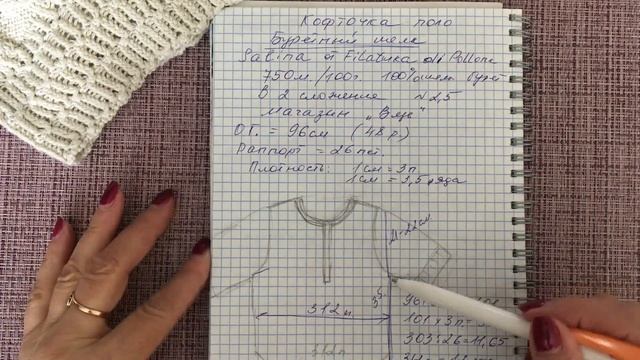 Кофточка поло
Буретный шелк
Satina от Filatura di Pollone
750м./100г. 100% шелк бурет
В 2 сложение № 2,5
магазин „Вяж"
О.Г. = 96см (48 р)
Раппорт = 26 пет.
Плотность: 1см = 3п.
1см = 3,5 ряда
21-22см
312п
312п
101 х 3п =
303:26=11,65